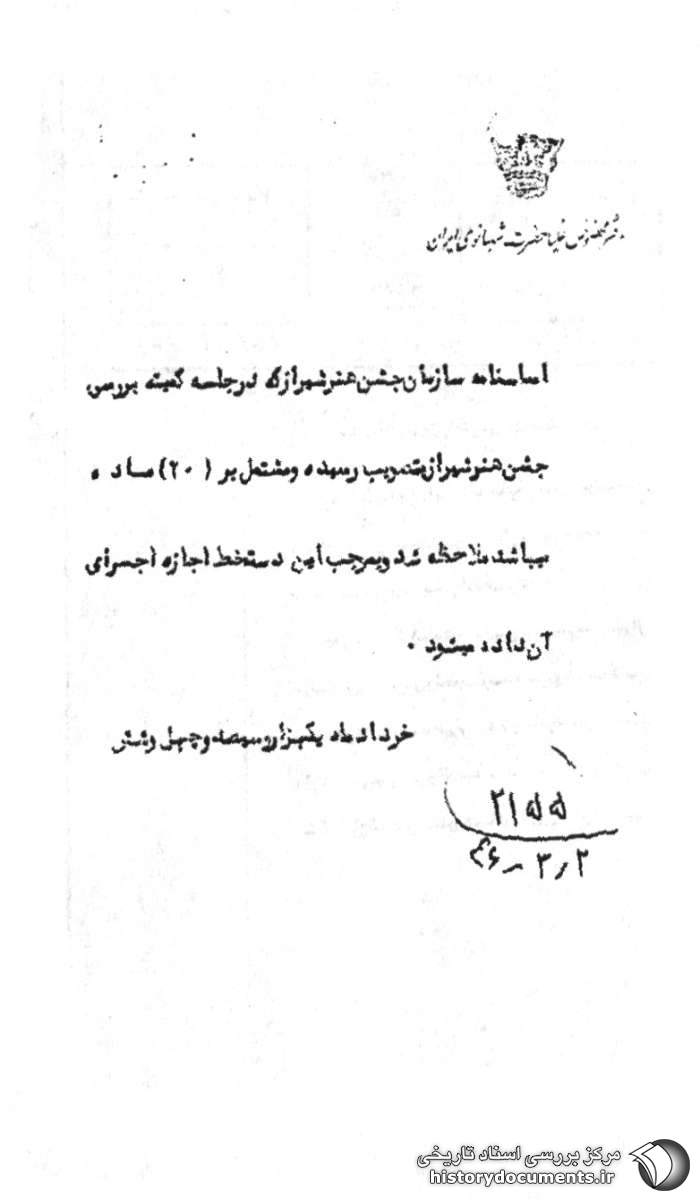 دفتر مخصوص علیاحضرت شهبانوی ایران
اساسنامه سازمان جشن هنر شیراز که در جلسه کمیته بررسی
جشن هنر شیراز بتصویب رسیده و مشتمل بر (۲۰) ماده
میباشد ملاحظه شد و بموجب این دستخط اجازه اجرای
آن داده میشود .
خرداد ماه یکهزار و سیصد و چهل و شش
۲۱۵۵
۴۶ر۳ر۲
مرکز بررسی اسناد تاریخی
historydocuments.ir